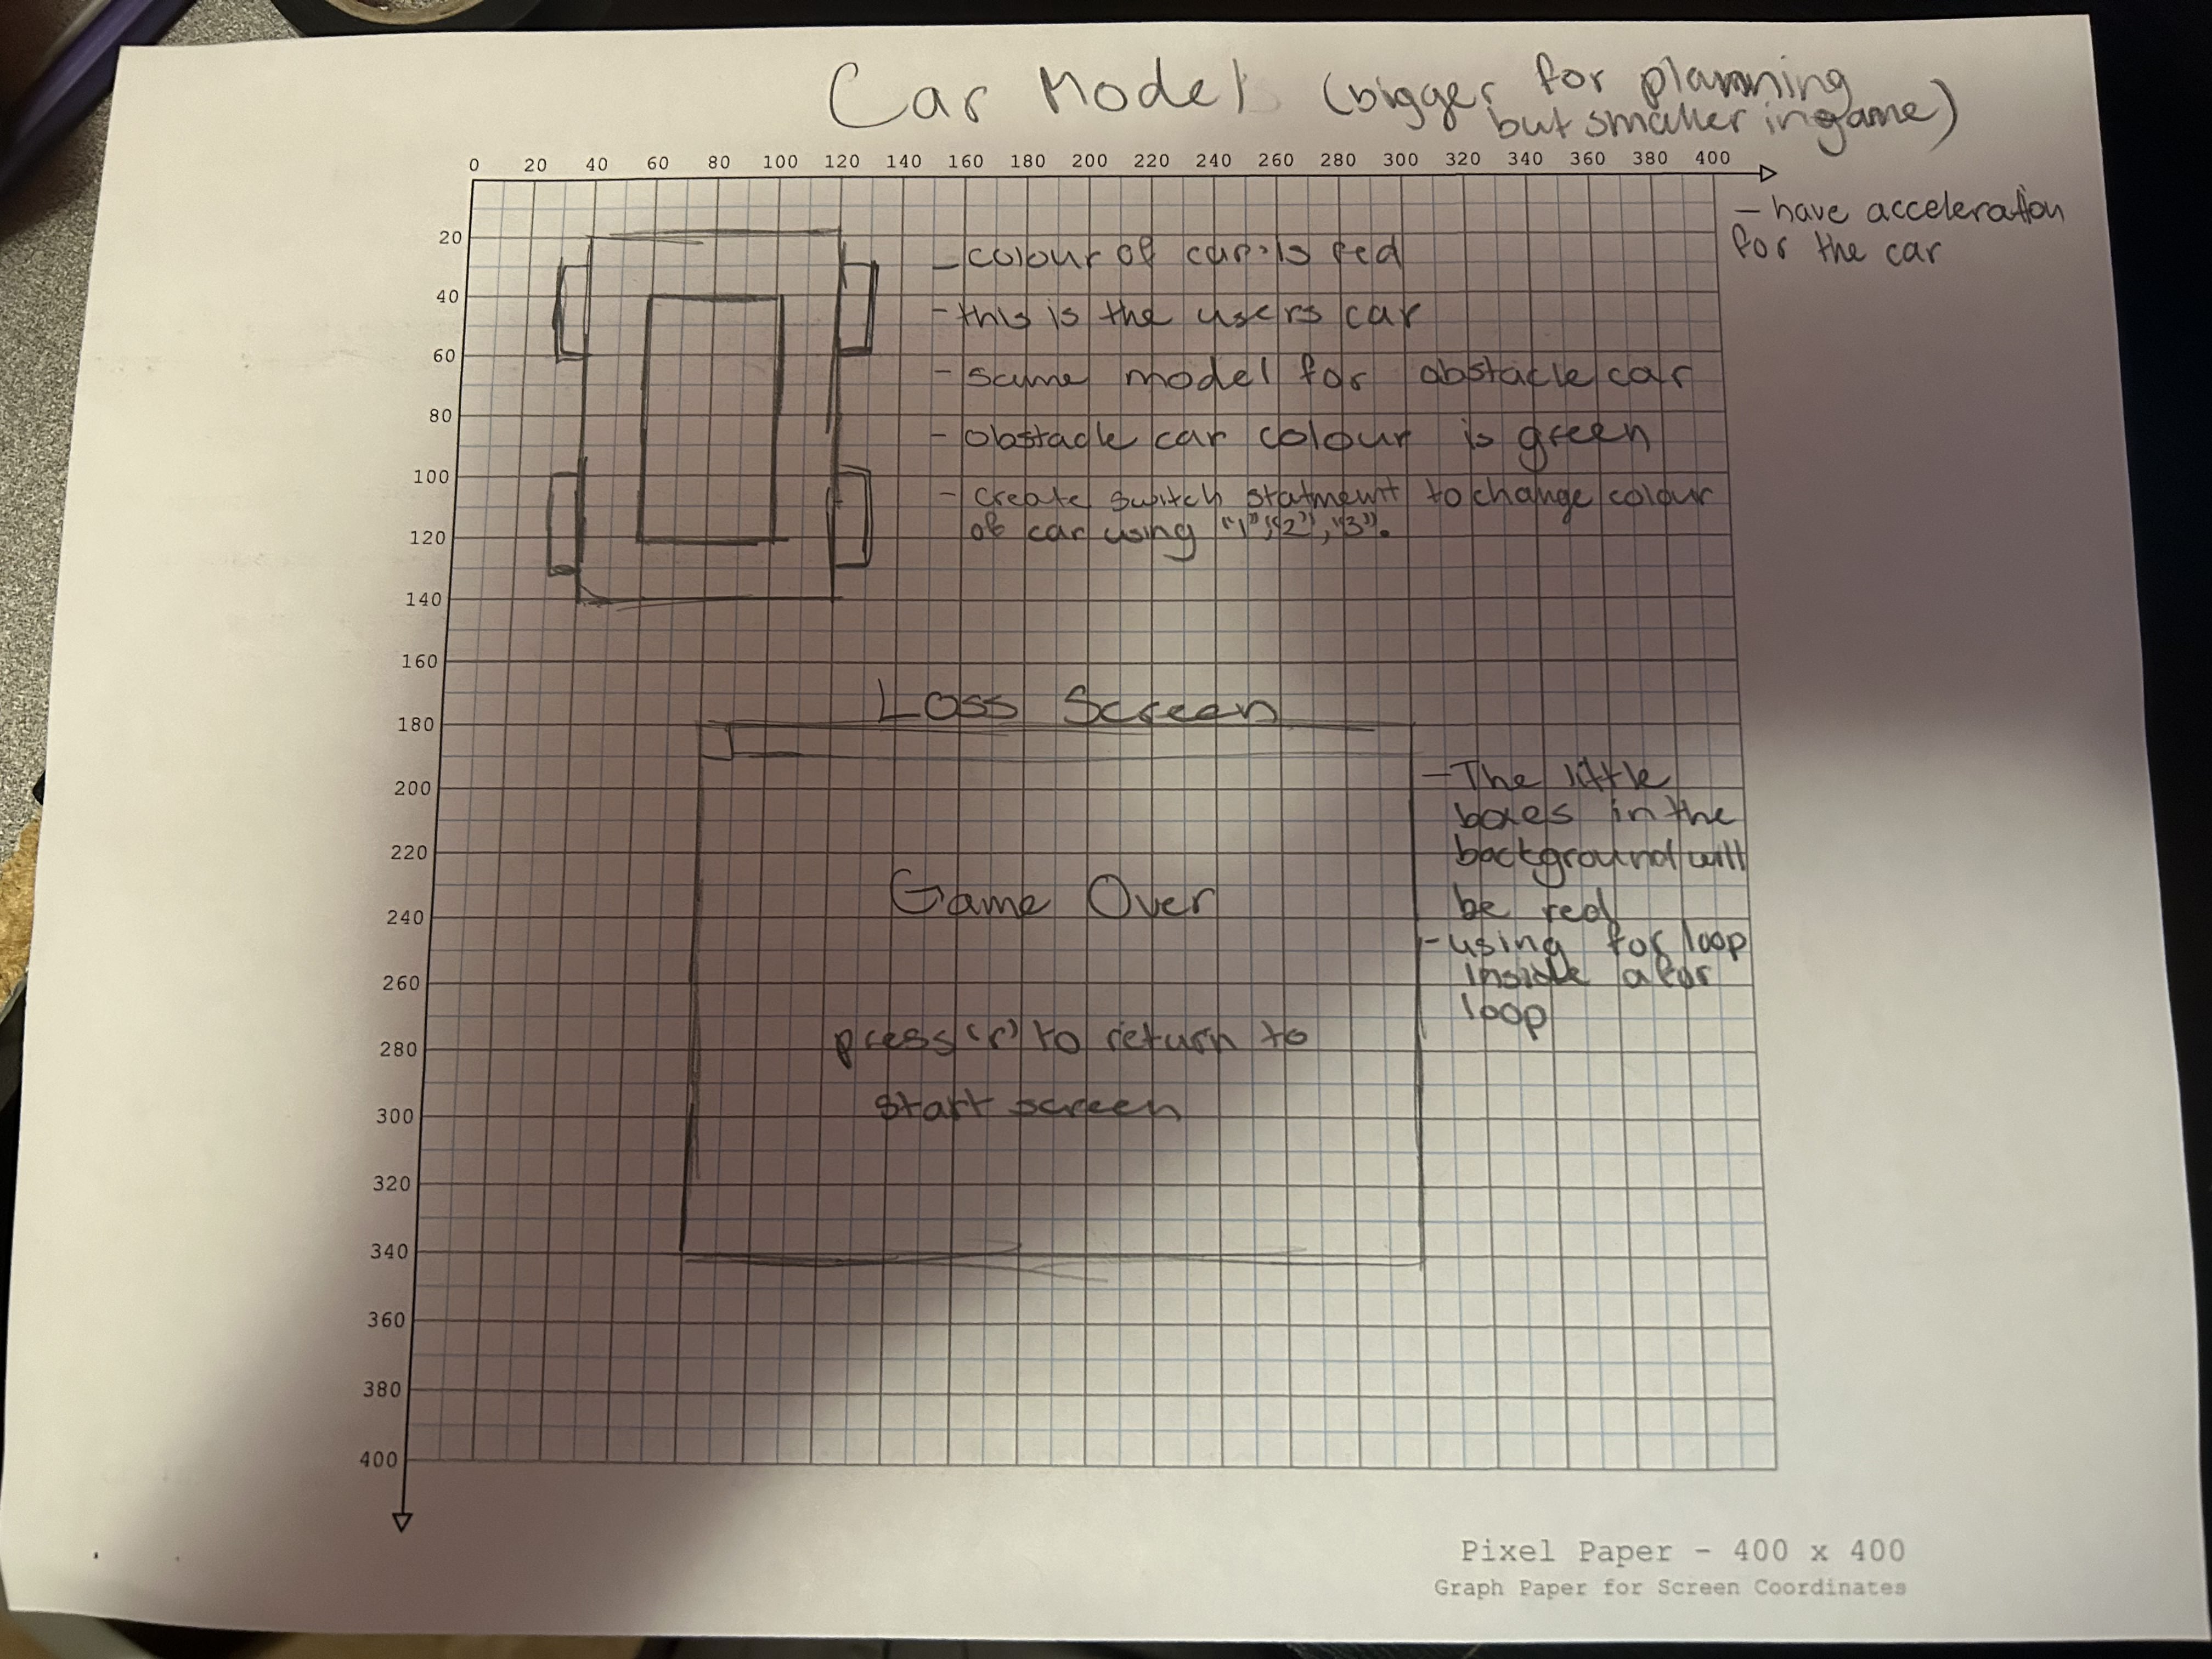 Car Model (bigger for planning
but smaller in game)
- have acceleration
for the car
0 20 40 60 80 100 120 140 160 180 200 220 240 260 280 300 320 340 360 380 400
20
40
60
80
100
120
140
160
180
200
220
240
260
280
300
320
340
360
380
400
- colour of car is red
- this is the users car
- same model for obstacle car
- obstacle car colour is green
- create switch statment to change colour
of car using "1", "2", "3".
Loss Screen
Game Over
press 'r' to return to
start screen
- The little
boxes in the
background will
be red
- using for loop
inside a for
loop
Pixel Paper - 400 x 400
Graph Paper for Screen Coordinates